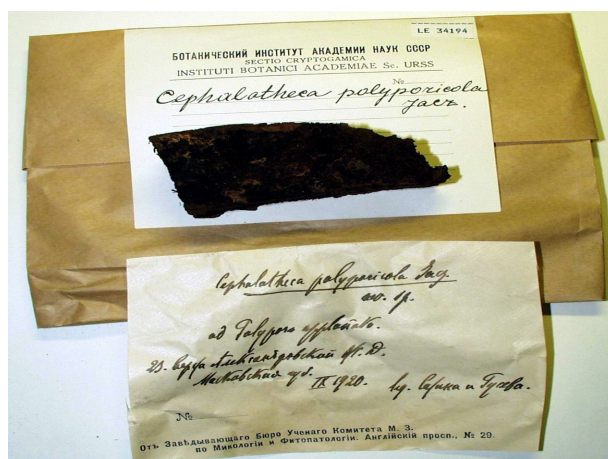 LE 34194
БОТАНИЧЕСКИЙ ИНСТИТУТ АКАДЕМИИ НАУК СССР
SECTIO CRYPTOGAMICA
INSTITUTI BOTANICI ACADEMIAE Sc. URSS
№
Cephalotheca polyporicola
Jacz.
Cephalotheca polyporicola Jacz.
ad Polyporo
Александровской ж. д.
Московская IX 1920.
№
Отъ Завѣдывающаго Бюро Ученаго Комитета М. З.
по Микологіи и Фитопатологіи. Англійскій просп., № 29.